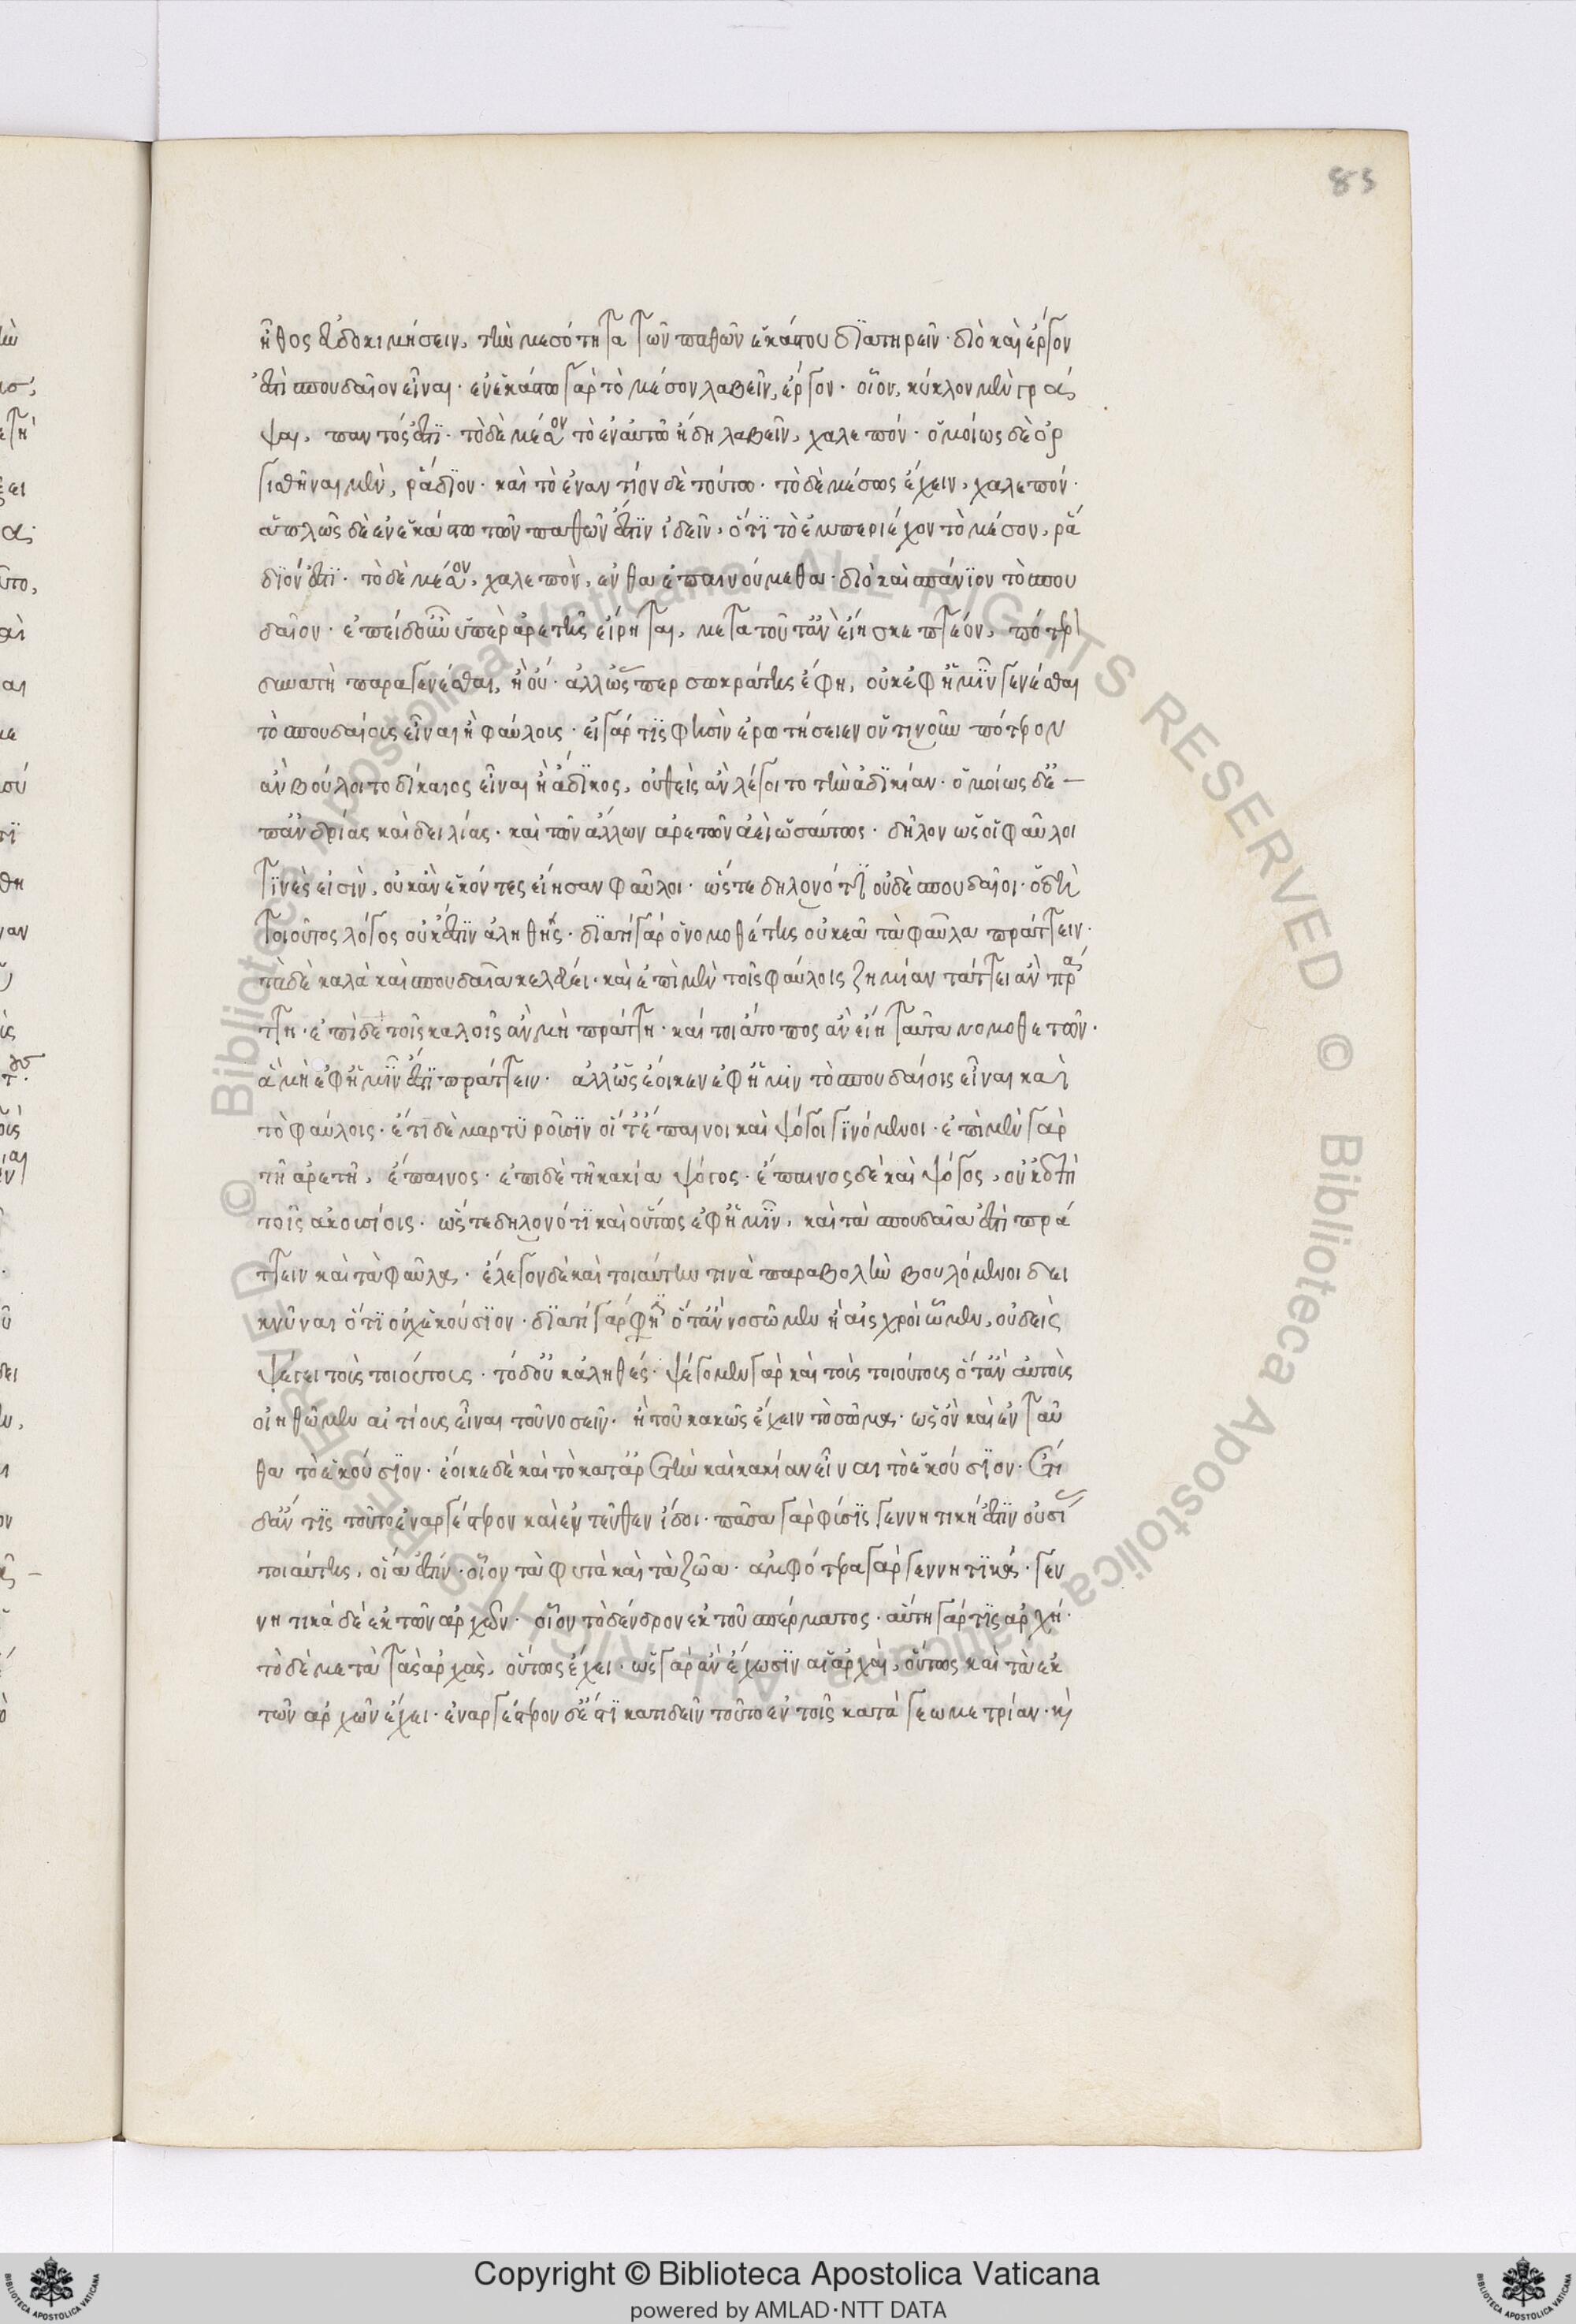 85
ἦθος εὐδοκιμήσειν, τὴν μεσότητα τῶν παθῶν ἑκάστου διατηρεῖν· διὸ καὶ ἔργον
ἐστὶ σπουδαῖον εἶναι· ἐν ἑκάστω γὰρ τὸ μέσον λαβεῖν, ἔργον· οἷον, κύκλον μὲν γρά
ψαι, παντός ἐστι· τὸ δὲ μέσον τὸ ἐν αὐτῶ ἤδη λαβεῖν, χαλεπόν· ὁμοίως δὲ ὀρ
γισθῆναι μὲν, ῥάδιον· καὶ τὸ ἐναντίον δὲ τούτω· τὸ δὲ μέσως ἔχειν, χαλεπόν·
ἁπλῶς δὲ ἐν ἑκάστω τῶν παθῶν ἔστιν ἰδεῖν, ὅτι τὸ ἐμπεριέχον τὸ μέσον, ῥά
διόν ἐστι· τὸ δὲ μέσον, χαλεπὸν, ἐν θα ἐπαινούμεθα· διὸ καὶ σπάνιον τὸ σπου
δαῖον· ἐπεὶ δ οὖν ὑπὲρ ἀρετῆς εἴρηται, μετα τοῦτ ἂν εἴη σκεπτέον, πότερὶ
δυνατὴ παραγενέσθαι, ἢ οὔ· ἀλλ ὥς περ σωκράτης ἔφη, οὐκ ἐφ ἡμῖν γενέσθαι
τὸ σπουδαίοις εἶναι ἢ φαύλοις· εἰ γάρ τις φησὶν ἐρωτήσειεν ὅντινοῦν πότερον
ἂν βούλοιτο δίκαιος εἶναι ἢ ἄδικος, οὐθεὶς ἂν λέγοιτο τὴν ἀδικίαν· ὁμοίως δἐ –
π ἀνδρίας καὶ δειλίας· καὶ τῶν ἄλλων ἀρετῶν ἀεὶ ὡσαύτως· δῆλον ὡς οἱ φαῦλοι
τινὲς εἰσὶν, οὐκ ἂν ἑκόντες εἴησαν φαῦλοι· ὥστε δηλονότι οὐδὲ σπουδαῖοι· ὁ δὴ
τοιοῦτος λόγος οὐκ ἔστιν ἀληθής· διατί γὰρ ὁ νομοθέτης οὐκ ἐᾶ τὰ φαῦλα πράττειν·
τὰ δὲ καλὰ καὶ σπουδαῖα κελεύει· καὶ ἐπὶ μὲν τοῖς φαύλοις ζημίαν τάττει ἂν πρά
ττη· ἐπὶ δὲ τοῖς καλοῖς ἂν μὴ πράττη· καί τοι ἄτοπος ἂν εἴη ταῦτα νομοθετῶν·
ἃ μὴ ἐφ ἡμῖν ἐστι πράττειν· ἀλλ ὡς ἔοικεν ἐφ ἡμῖν τὸ σπουδαίοις εἶναι καὶ
τὸ φαύλοις· ἔτι δὲ μαρτυροῦσιν οἵ τ ἔπαινοι καὶ ψόγοι γινόμενοι· ἐπὶ μὲν γὰρ
τῆ ἀρετῆ, ἔπαινος· ἐπι δὲ τῆ κακία ψόγος· ἔπαινος δὲ καὶ ψόγος, οὐκ ἐπὶ
τοῖς ἀκουσίοις· ὥστε δηλονότι καὶ οὕτως ἐφ ἡμῖν, καὶ τὰ σπουδαῖα ἐστὶ πρά
ττειν καὶ τὰ φαῦλα· ἔλεγον δὲ καὶ τοιαύτην τινὰ παραβολὴν βουλόμενοι δει
κνῦναι ὅτι οὐχ ἑκούσιον· διατί γάρ φησι ὅτ ἂν νοσῶμεν ἢ αἰσχροὶ ὦμεν, οὐδεὶς
ψέγει τοὺς τοιούτους· τὸ δ οὐκ ἀληθές· ψέγομεν γὰρ καὶ τοὺς τοιούτους ὅτ ἂν αὐτοὺς
οἰηθῶμεν αἰτίους εἶναι τοῦ νοσεῖν· ἢ τοῦ κακῶς ἔχειν τὸ σῶμα· ὡς ὂν καὶ ἐν ταῦ
θα τὸ ἑκούσιον· ἔοικε δὲ καὶ τὸ κατ ἀρετὴν καὶ κακίαν εἶναι τὸ ἑκούσιον· ἔτι
δ ἄν τις τοῦτο ἐναργέστερον καὶ ἐν τεῦθεν ἴδοι· πᾶσα γὰρ φύσις γεννητική ἐστιν οὐσί
τοιαύτης, οἵα ἐστίν· οἷον τὰ φυτὰ καὶ τὰ ζῶα· ἀμφότερα γὰρ γεννητικά· γεν
νητικὰ δὲ ἐκ τῶν ἀρχῶν· οἷον τὸ δένδρον ἐκ τοῦ σπέρματος· αὕτη γάρ τις ἀρχή·
τὸ δὲ μετὰ τὰς ἀρχὰς, οὕτως ἔχει· ὡς γὰρ ἂν ἔχωσιν αἱ ἀρχαὶ, οὕτως καὶ τὰ ἐκ
τῶν ἀρχῶν ἔχει· ἐναργέστερον δ ἔστι κατιδεῖν τοῦτο ἐν τοῖς κατὰ γεωμετρίαν· κὶ
Copyright © Biblioteca Apostolica Vaticana
powered by AMLAD·NTT DATA